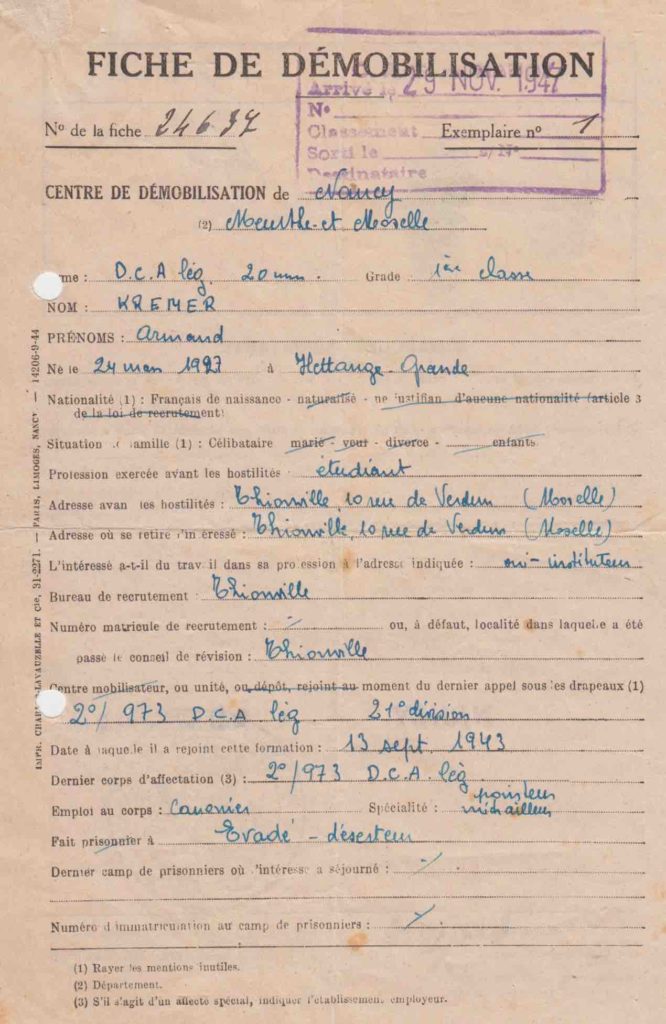 FICHE DE DÉMOBILISATION
Arrivé le 29 NOV. 1947
N°
Classement
Sorti le s/N°
Destinataire
N° de la fiche 24637
Exemplaire n° 1
CENTRE DE DÉMOBILISATION de Nancy
(2) Meurthe-et Moselle
me : D.C.A lég. 20 mm. Grade : 1ère classe
NOM : KREMER
PRÉNOMS : Armand
Né le 24 mars 1927 à Hettange-Grande
Nationalité (1) : Français de naissance - naturalisé - ne justifian d'aucune nationalité (article 3
de la loi de recrutement)
Situation de famille (1) : Célibataire marié - veuf - divorcé - enfants
Profession exercée avant les hostilités étudiant
Adresse avan les hostilités : Thionville, 10 rue de Verdun (Moselle)
Adresse où se retire l'in éressé : Thionville, 10 rue de Verdun (Moselle)
L'intéressé a-t-il du trav il dans sa pro ession à l'adresse indiquée : oui - instituteur
Bureau de recrutement : Thionville
Numéro matricule de recrutement : - ou, à défaut, localité dans laquelle a été
passé le conseil de révision : Thionville
Centre mobilisateur, ou unité, ou dépôt, rejoint au moment du dernier appel sous les drapeaux (1)
2°/973 D.C.A lég 21° division
Date à laquelle il a rejoint cette formation : 13 sept. 1943
Dernier corps d'affectation (3) : 2°/973 D.C.A lég
Emploi au corps : Canonier Spécialité : pointeur
mitrailleur
Fait prisonnier à Evadé - déserteur
Dernier camp de prisonniers où l'intéressé a séjourné : -
Numéro d'immatriculation au camp de prisonniers : -
(1) Rayer les mentions inutiles.
(2) Département.
(3) S'il s'agit d'un affecté spécial, indiquer l'établissement employeur.
IMPR. CHARLES-LAVAUZELLE ET Cie, 31-2271. — PARIS, LIMOGES, NANCY — 14206-9-44